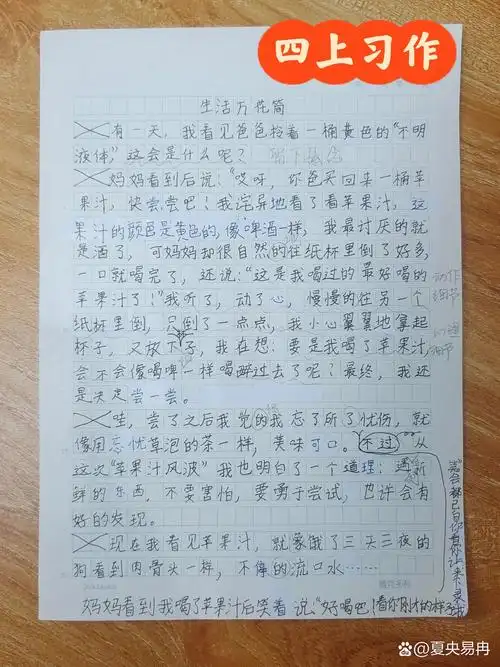 四上习作
生活万花筒
有一天，我看见爸爸拎着一桶黄色的“不明
液体”，这会是什么呢？
妈妈看到后说：“哎呀，你爸买回来一桶苹
果汁，快尝尝吧！我诧异地看了看苹果汁，这
果汁的颜色是黄色的，像啤酒一样，我最讨厌的就
是酒了，可妈妈却很自然的往纸杯里倒了好多，
一口就喝完了，还说：“这是我喝过的最好喝的
苹果汁了！”我听了，动了心，慢慢的往另一个
动作
细节
纸杯里倒，只倒了一点点，我小心翼翼地拿起
杯子，又放下了，我在想：要是我喝了苹果汁
细节
会不会像喝啤一样喝醉过去了呢？最终，我还
是决定尝一尝。
哇，尝了之后我觉的我忘了所了忧伤，就
像用忘忧草泡的茶一样，美味可口。不过”从
这次“苹果汁风波”我也明白了一个道理：遇新
鲜的东西，不要害怕，要勇于尝试，也许会有
好的发现。
现在我看见苹果汁，就象饿了三天三夜的
狗看到肉骨头一样，不停的流口水……
妈妈看到我喝了苹果汁后笑着说：“好喝吧！看你刚才的样子
@夏央易冉